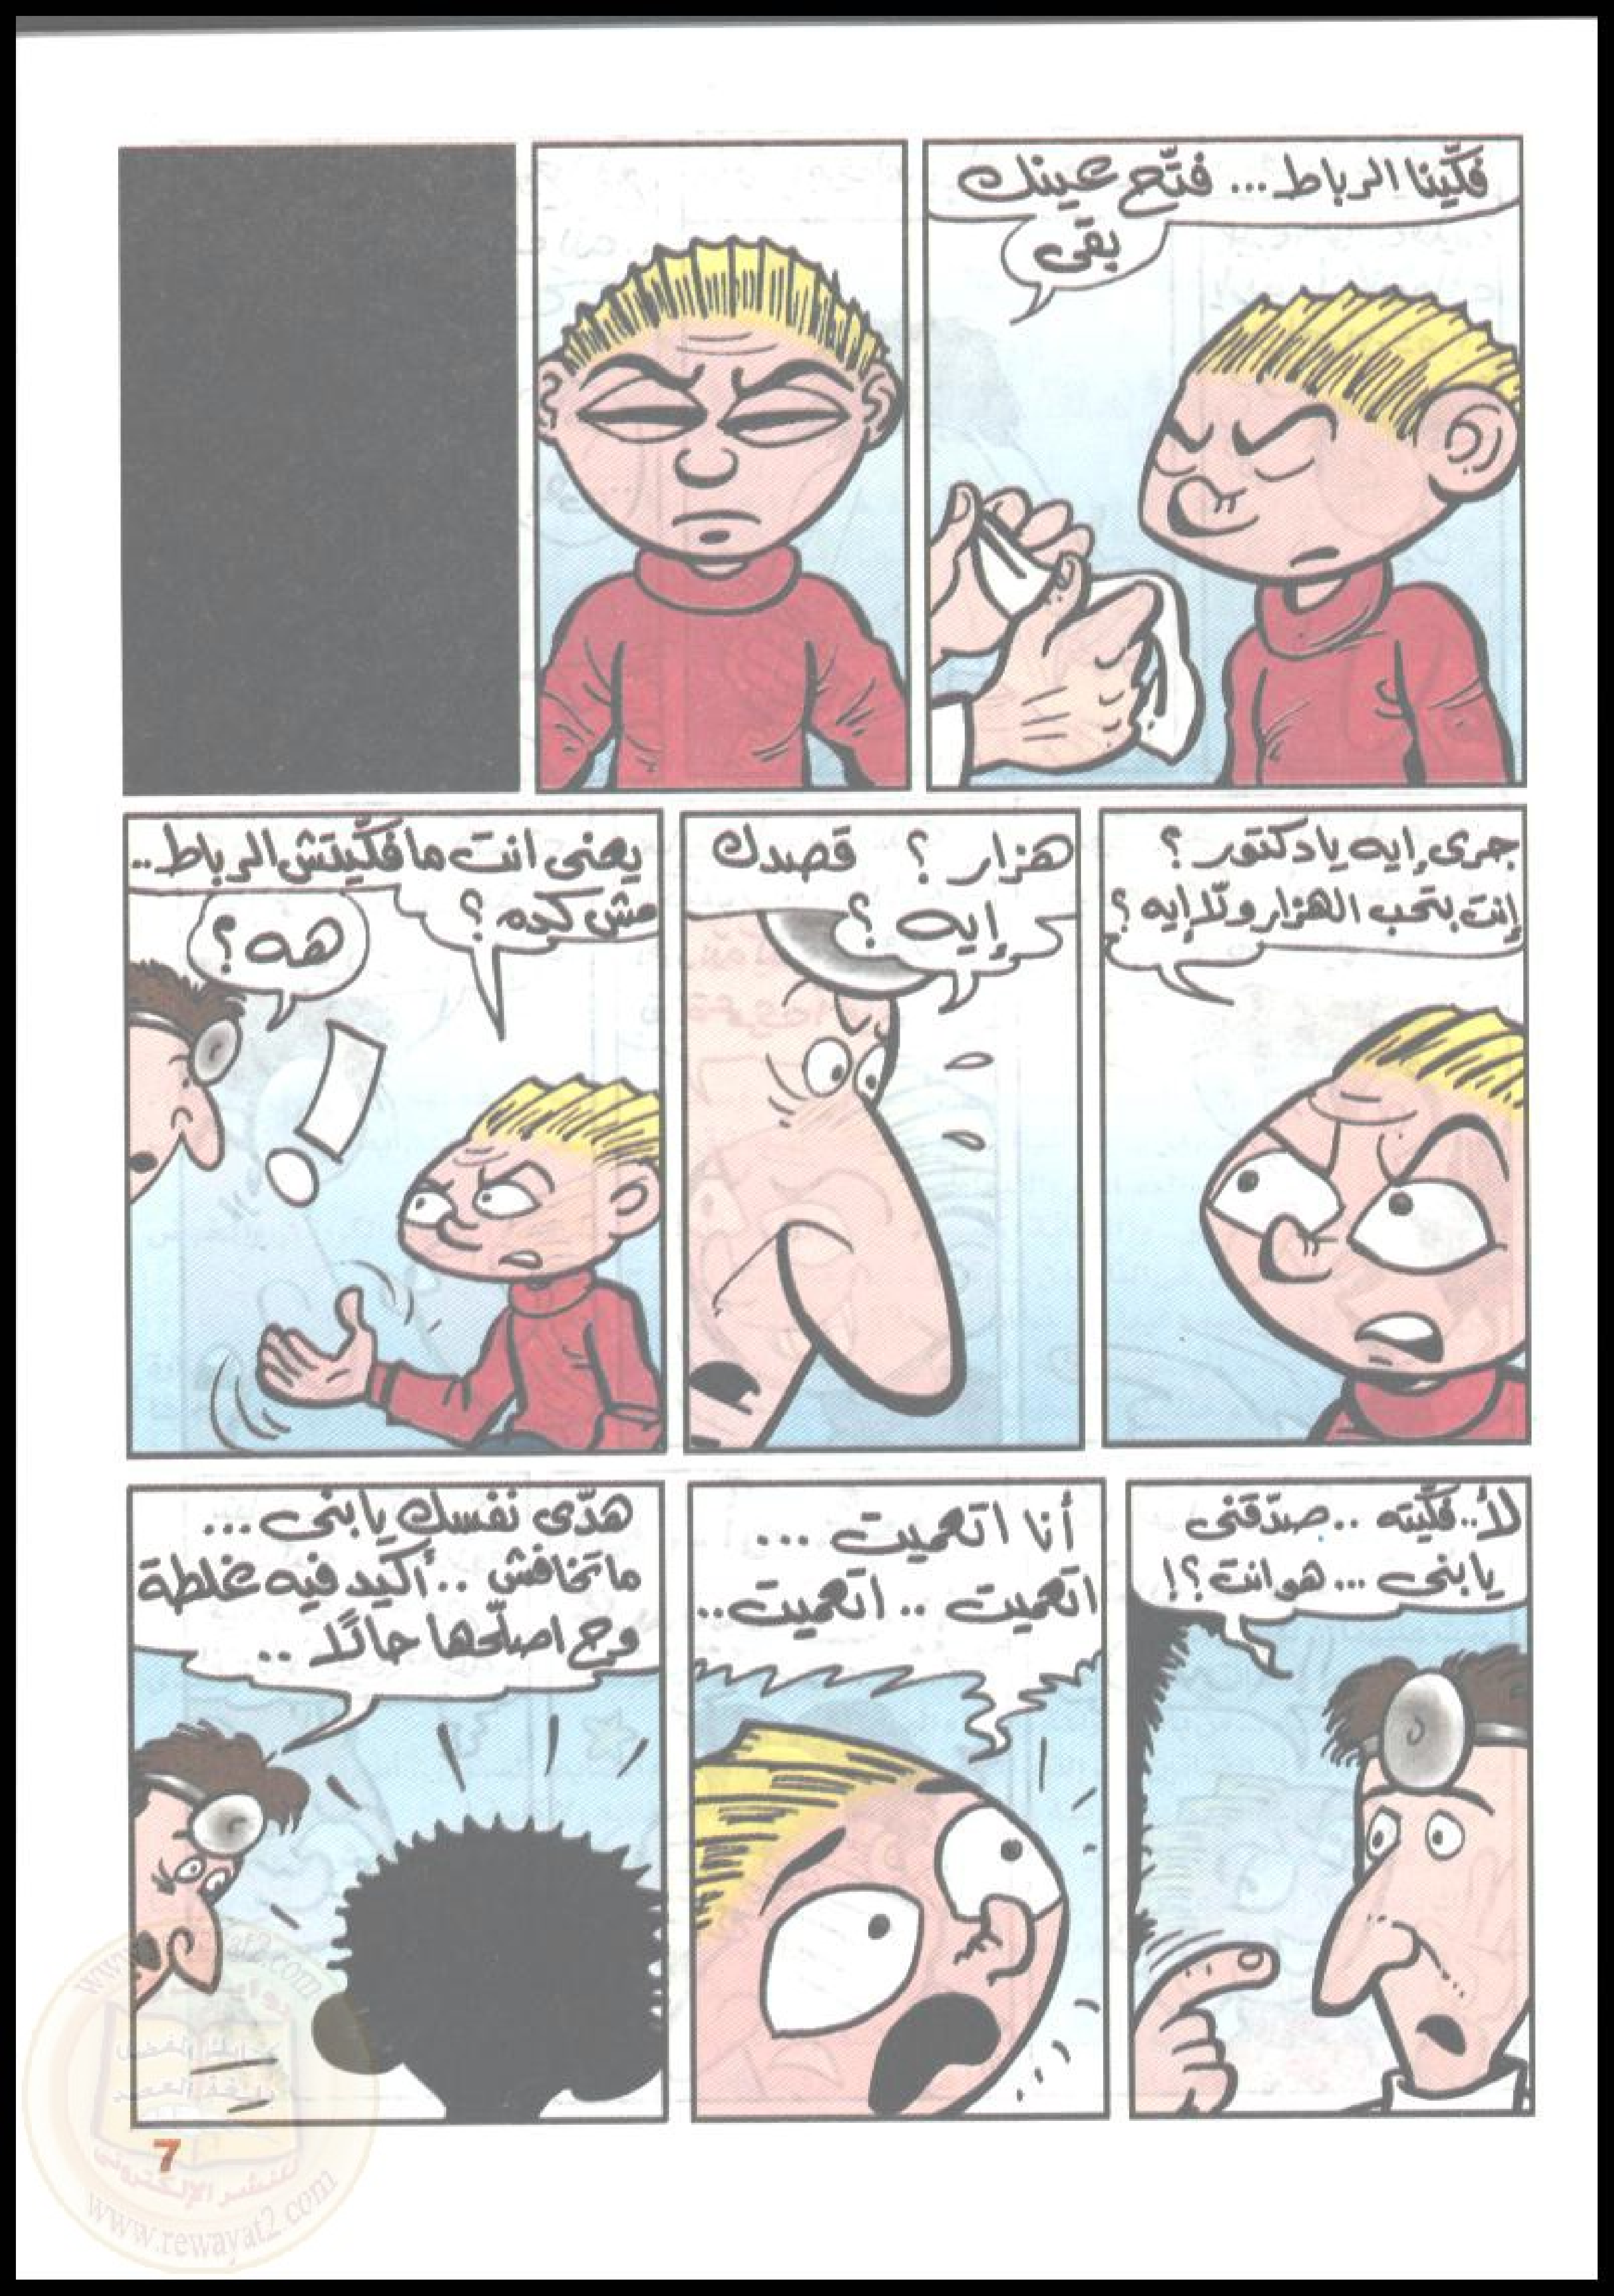 فكّينا الرباط... فتّح عينك
بقى
جرى إيه يا دكتور ؟
إنت بتحب الهزار ولّا إيه ؟
هزار ؟ قصدك
إيه ؟
يعنى انت ما فكّيتش الرباط..
مش كده ؟
هه ؟
لأ.. فكّيته .. صدّقنى
يا بنى ... هو انت ؟!
أنا اتعميت ...
اتعميت .. اتعميت ..
هدّى نفسك يا بنى ...
ماتخافش .. أكيد فيه غلطة
وح اصلّحها حالًا ..
7
للنشر الإلكترونى
www.rewayat2.com